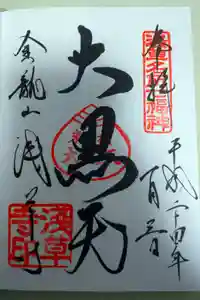 奉拝
浅草名所七福神
平成二十四年
大黒天
金龍山浅草寺
浅草寺印